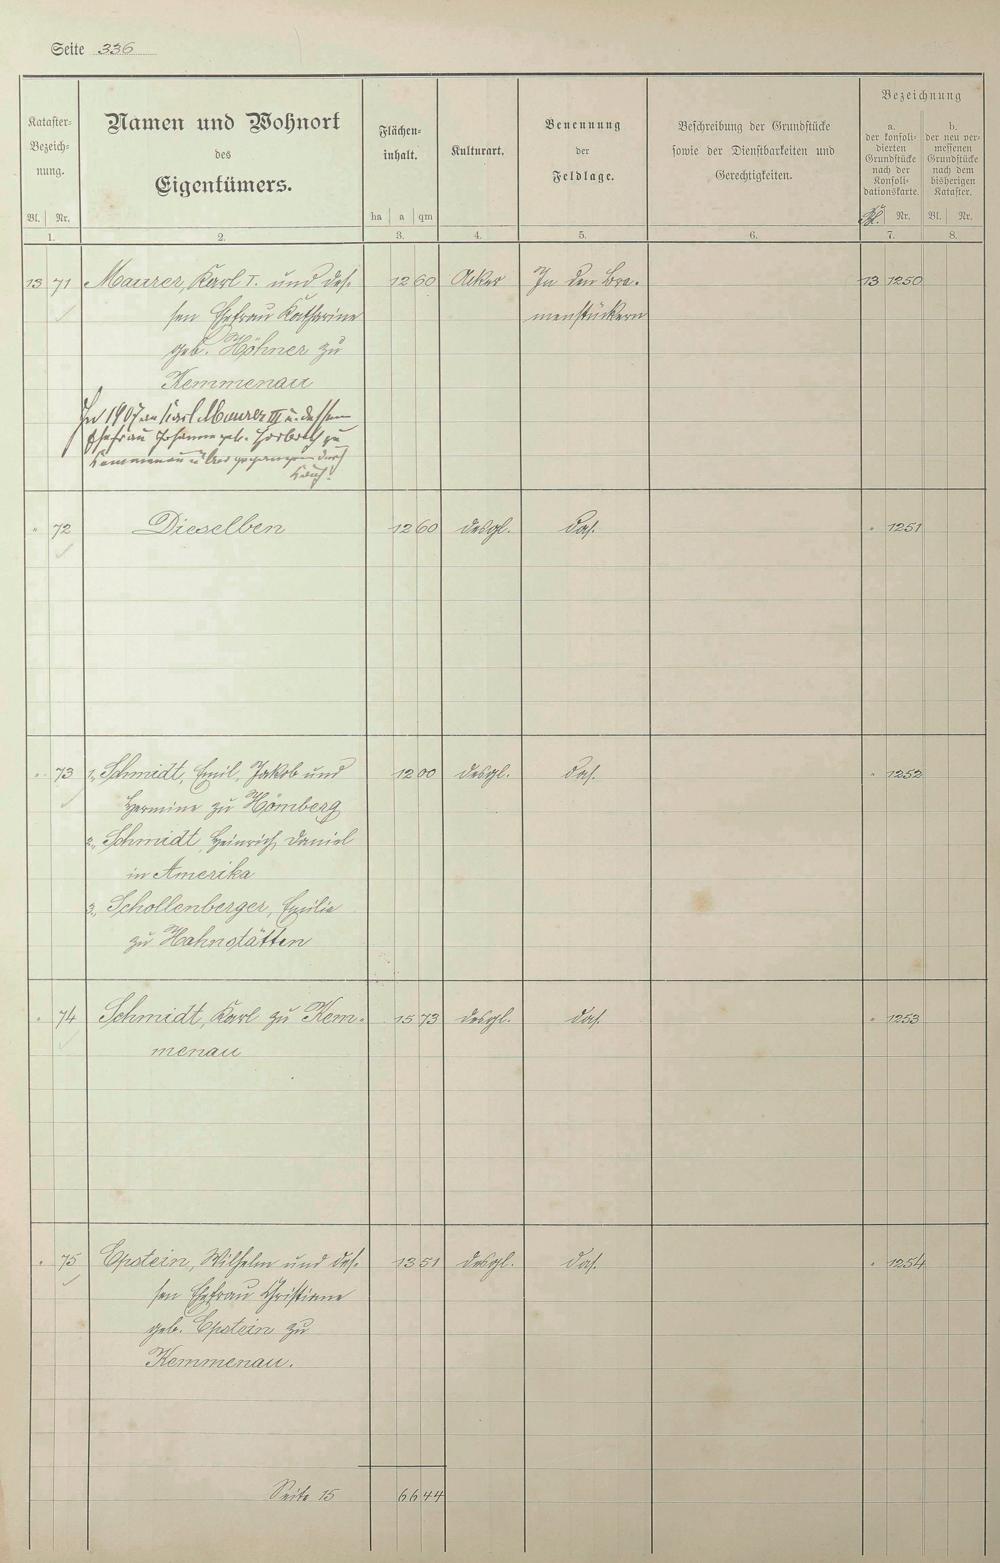 Seite 336
Kataster-
Bezeich-
nung.
Bl. Nr.
1.
Namen und Wohnort
des
Eigentümers.
2.
Flächen-
inhalt.
ha a qm
3.
Kulturart.
4.
Benennung
der
Feldlage.
5.
Beschreibung der Grundstücke
sowie der Dienstbarkeiten und
Gerechtigkeiten.
6.
Bezeichnung
a.
der konsoli-
dierten
Grundstücke
nach der
Konsoli-
dationskarte.
Bl. Nr.
7.
b.
der neu ver-
messenen
Grundstücke
nach dem
bisherigen
Kataster.
Bl. Nr.
8.
13 71 Maurer, Karl I. und des- 12 60 Acker In den Bra- 13 1250
sen Ehefrau Katharine menstückern
geb. Höhner zu
Kemmenau
In 1907 an Karl Maurer III u. dessen
Ehefrau Johanne geb. zu
Kemmenau durch
Kauf.
" 72 Dieselben 12 60 desgl. das. " 1251
" 73 1, Schmidt, Emil, Jakob und 12 00 desgl. das. " 1252
Hermine zu Hömberg
2, Schmidt, Heinrich, Daniel
in Amerika
3, Schollenberger, Emilie
zu Hahnstätten
" 74 Schmidt, Karl zu Kem- 15 73 desgl. das. " 1253
menau
" 75 Epstein, Wilhelm und des- 13 51 desgl. das. " 1254
sen Ehefrau Christiane
geb. Epstein zu
Kemmenau.
Seite 15 66 44